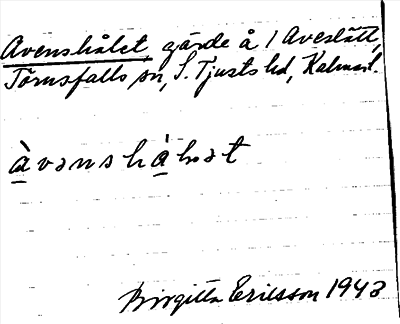 Avenshålet, gärde å 1 Aveslätt,
Törnsfalls sn, S. Tjusts hd, Kalmar l.
àvənshàlət
Birgitta Ericsson 1943